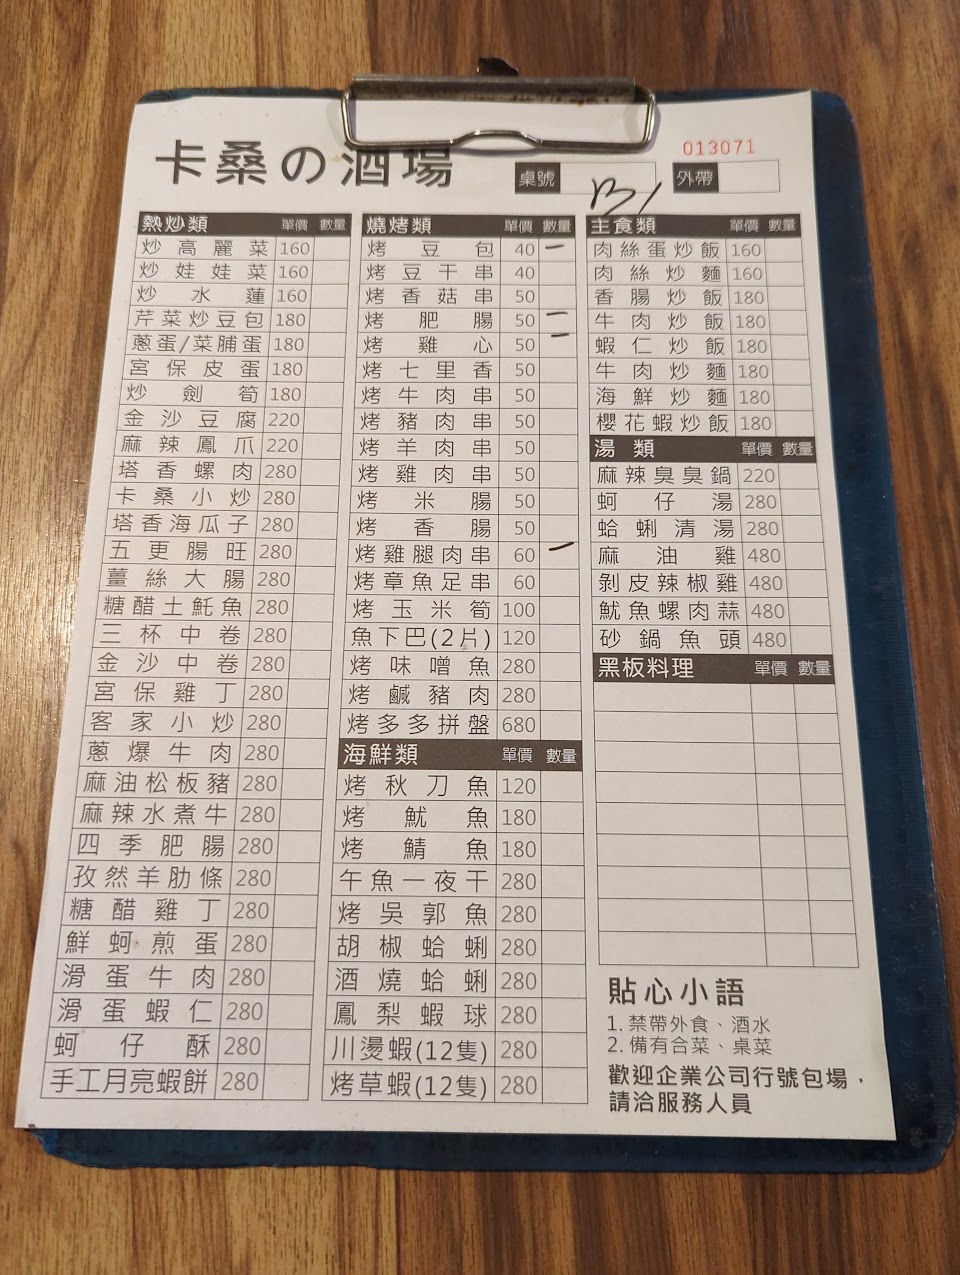 卡桑の酒場
013071
桌號 B1 外帶
熱炒類 單價 數量
炒高麗菜 160
炒娃娃菜 160
炒水蓮 160
芹菜炒豆包 180
蔥蛋/菜脯蛋 180
宮保皮蛋 180
炒劍筍 180
金沙豆腐 220
麻辣鳳爪 220
塔香螺肉 280
卡桑小炒 280
塔香海瓜子 280
五更腸旺 280
薑絲大腸 280
糖醋土魠魚 280
三杯中卷 280
金沙中卷 280
宮保雞丁 280
客家小炒 280
蔥爆牛肉 280
麻油松板豬 280
麻辣水煮牛 280
四季肥腸 280
孜然羊肋條 280
糖醋雞丁 280
鮮蚵煎蛋 280
滑蛋牛肉 280
滑蛋蝦仁 280
蚵仔酥 280
手工月亮蝦餅 280
燒烤類 單價 數量
烤豆包 40 一
烤豆干串 40
烤香菇串 50
烤肥腸 50 一
烤雞心 50 一
烤七里香 50
烤牛肉串 50
烤豬肉串 50
烤羊肉串 50
烤雞肉串 50
烤米腸 50
烤香腸 50
烤雞腿肉串 60 一
烤章魚足串 60
烤玉米筍 100
魚下巴(2片) 120
烤味噌魚 280
烤鹹豬肉 280
烤多多拼盤 680
海鮮類 單價 數量
烤秋刀魚 120
烤魷魚 180
烤鯖魚 180
午魚一夜干 280
烤吳郭魚 280
胡椒蛤蜊 280
酒燒蛤蜊 280
鳳梨蝦球 280
川燙蝦(12隻) 280
烤草蝦(12隻) 280
主食類 單價 數量
肉絲蛋炒飯 160
肉絲炒麵 160
香腸炒飯 180
牛肉炒飯 180
蝦仁炒飯 180
牛肉炒麵 180
海鮮炒麵 180
櫻花蝦炒飯 180
湯類 單價 數量
麻辣臭臭鍋 220
蚵仔湯 280
蛤蜊清湯 280
麻油雞 480
剝皮辣椒雞 480
魷魚螺肉蒜 480
砂鍋魚頭 480
黑板料理 單價 數量
貼心小語
1. 禁帶外食、酒水
2. 備有合菜、桌菜
歡迎企業公司行號包場，
請洽服務人員